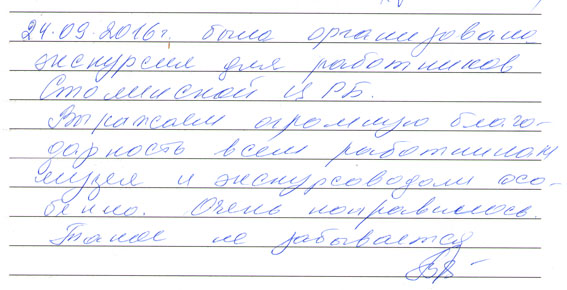 24.09.2016г. была организована
экскурсия для работников
Столинской ЦРБ.
Выражаем огромную благо-
дарность всем работникам
музея и экскурсоводам осо-
бенно. Очень понравилось.
Такое не забывается